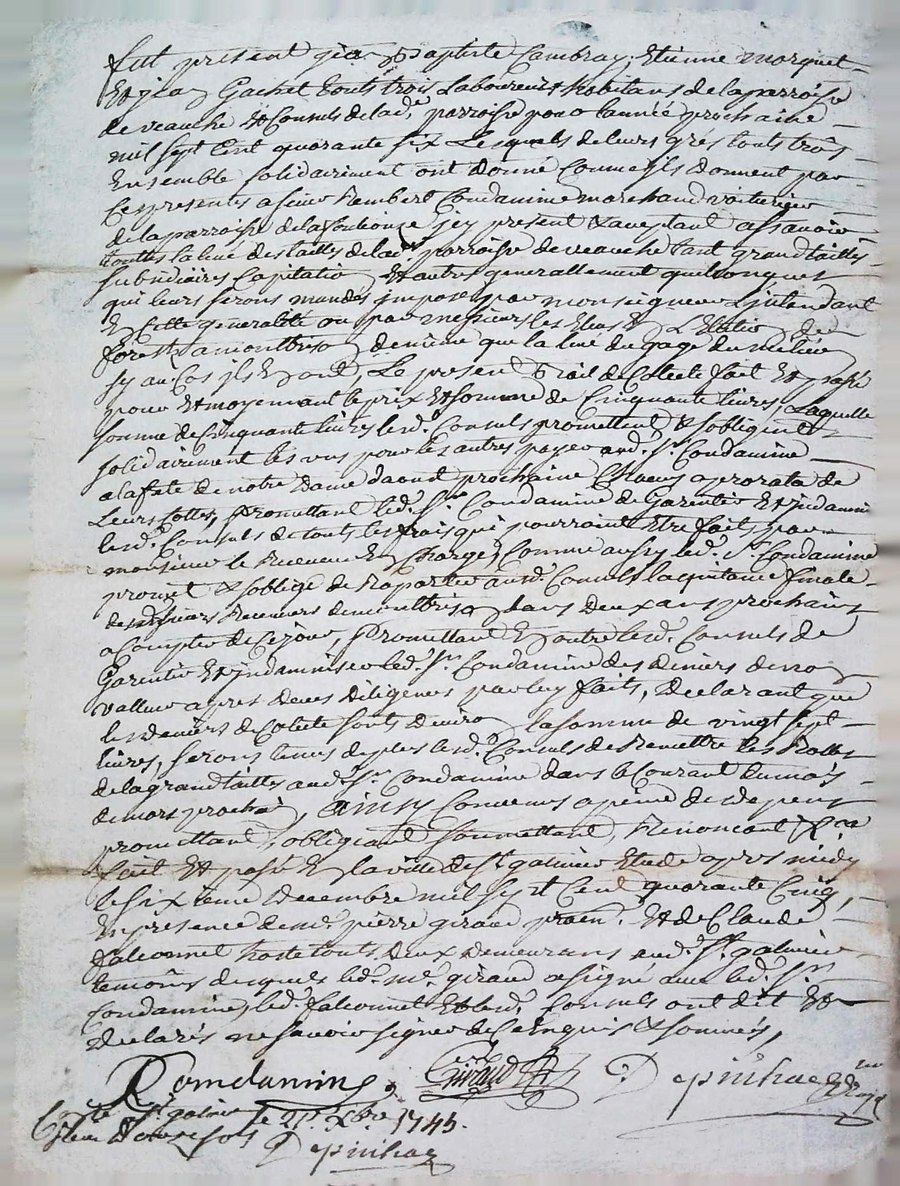 fut present jean Baptiste Cambray, Etienne morquet
Et jean Gachet touts trois Laboureurs habitans de la parroisse
de veauche Et Consuls de lad.e parroisse pour l'année prochaine
mil sept Cent quarante six Lesquels de leurs grés touts trois
Ensemble solidairement ont donné Comme ils donnent par
Ces presentes a sieur Rembert Condamine marchand voiturier
de la parroisse de la fouliouse jcy present & aceptant assavoir
touttes la levé des tailles de lad.e parroisse de veauche tant grand tailles
subsidiaires Capitation Et autres generallement quilconques
qui leurs serons mandés jmposés par monseigneur L'intendant
En Cette generalité ou par messieurs les Eleus En L'Election de
forest a montbrison de même que la levé du gage du
sy au Cas ils En ont. Le present Bail de Colecte fait Et passé
pour Et moyennant le prix Et somme de Cinquante livres, Laquelle
somme de Cinquante livres lesd. Consuls promettent & sobligent
solidairement les uns pour les autres payer aud. Sr. Condamine
a la fete de notre Dame daoust prochaine Chacuns a prorata de
Leurs Cottes, promettant led. Sr. Condamine de Garentir Et jndamniser
lesd. Consuls de touts les frais qui pourraint Etre fait, par
monsieur le Receveur En Charge, Comme aussy led. Sr. Condamine
promet & soblige de Raporter ausd. Consuls la quitance finale
de messieurs Receveurs de montbrison dans deux ans prochains
a Compter de Ce jour, promettant En outre lesd. Consuls de
Garentir Et jndamniser led. Sr. Condamine des deniers de non
valleur apres deues diligences par luy faits, declarant que
les deniers de Colecte sonts denviron la somme de vingt sept
livres, serons tenus de plus lesd. Consuls de Remettre les Rolles
de la grand tailles aud. Sr. Condamine dans le Courant du mois
de mars prochain, Ainsy Convenus a peine de depens
promettant, obligeant soumettant, Renoncant &ca
fait Et passé En la ville de St. galmier Etude apres midy
le sixieme Decembre mil sept Cent quarante Cinq,
En presence de me. pierre giraud praen. Et de Claude
falconnet hoste touts deux demeurans aud. St. galmier
temoins desquels led. me. giraud a signé avec led. Sr.
Condamine, led. falconnet Et lesd. Consuls ont dit Et
declarés ne savoir signer de Ce Enquis & sommés,
Comdamine, Giraud Depinhac
St. galmier le 21e. Xbre 1745.
Depinhac